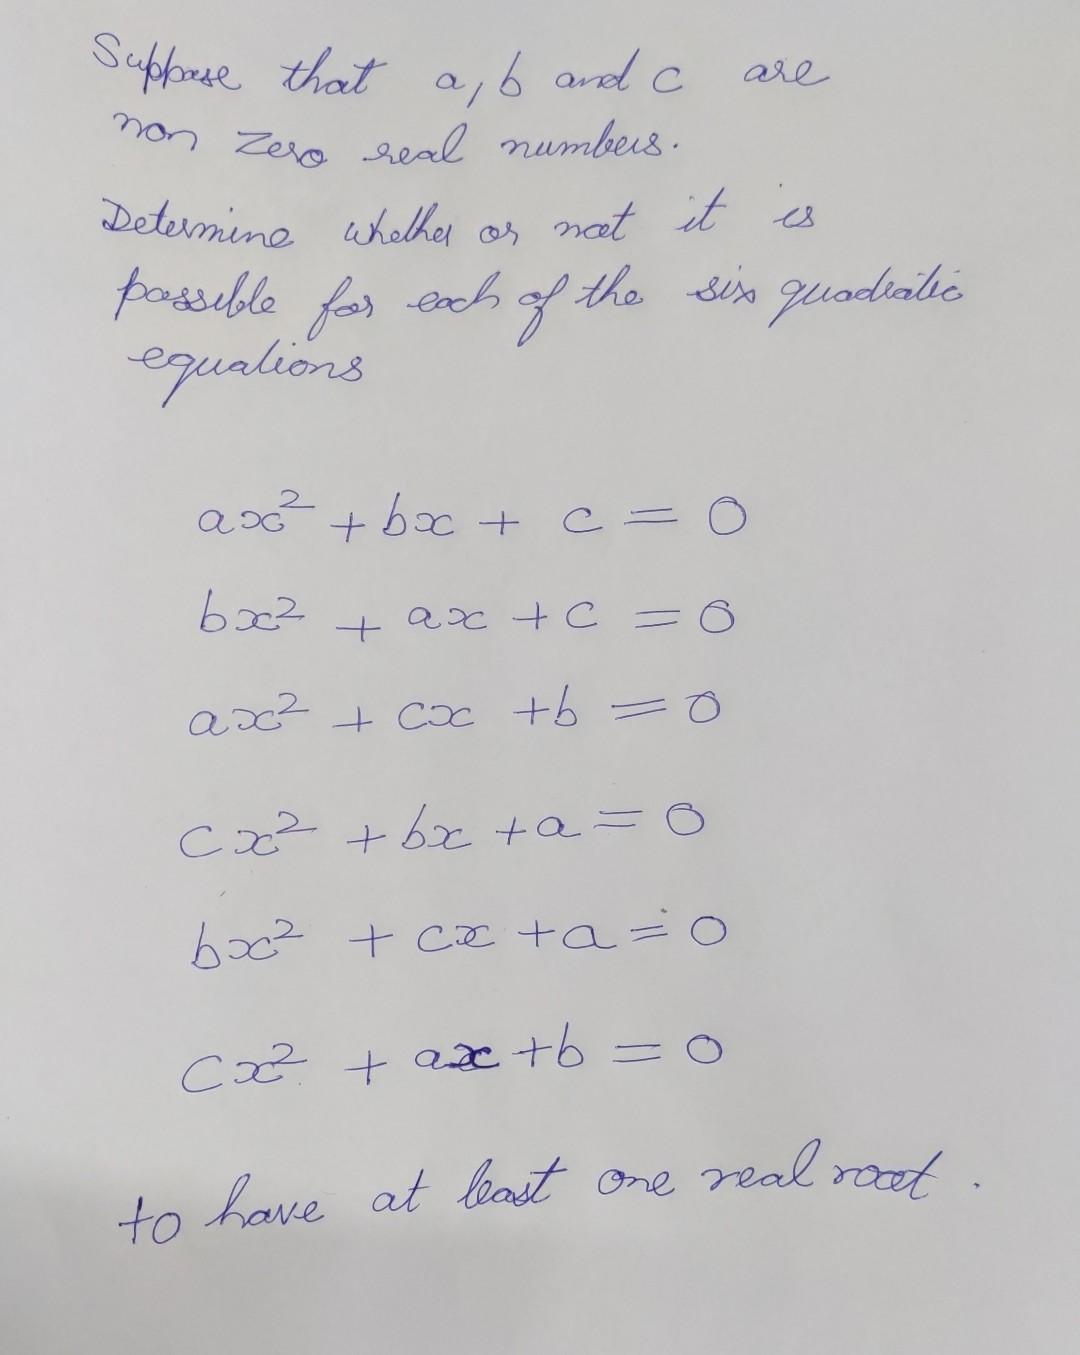 Suppose that a, b and c are
non zero real numbers.
Determine whether or not it is
possible for each of the six quadratic
equations
ax² + bx + c = 0
bx² + ax + c = 0
ax² + cx + b = 0
cx² + bx + a = 0
bx² + cx + a = 0
cx² + ax + b = 0
to have at least one real root.